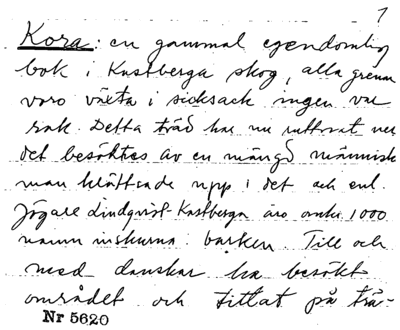 1
Kora: en gammal egendomlig
bok i Kastberga skog, alla grenar
voro växta i sicksack ingen var
rak. Detta träd har nu ruttnat ner
det besöktes av en mängd människ
man klättrade upp i det och enl.
Jägare Lindqvist-Kastberga äro omkr. 1000
namn inskurna i barken. Till och
med danskar ha besökt
området och tittat på trä-
Nr 5620